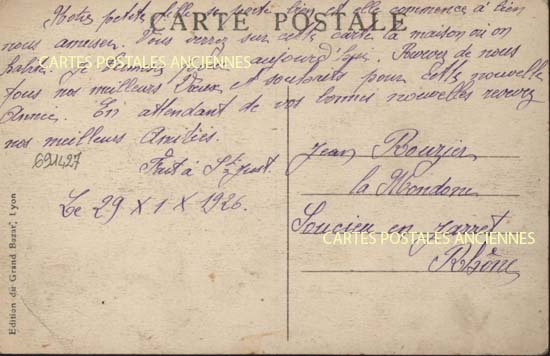 CARTE POSTALE
Notre petite fille se porte bien et elle commence à bien
nous amuser. Vous verrez sur cette carte la maison où on
habite. aujourd'hui. Recevez de nous
CARTES POSTALES ANCIENNES
tous nos meilleurs Vœux et souhaits pour cette nouvelle
Année. En attendant de vos bonnes nouvelles recevez
nos meilleurs Amitiés.
691427
Fait à St Just.
Le 29 X 1 X 1926.
Jean Rouzier
la Rondone
Soucieu en Jarret
CARTES POSTALES ANCIENNES
Rhône
Edition du Grand Bazar, Lyon